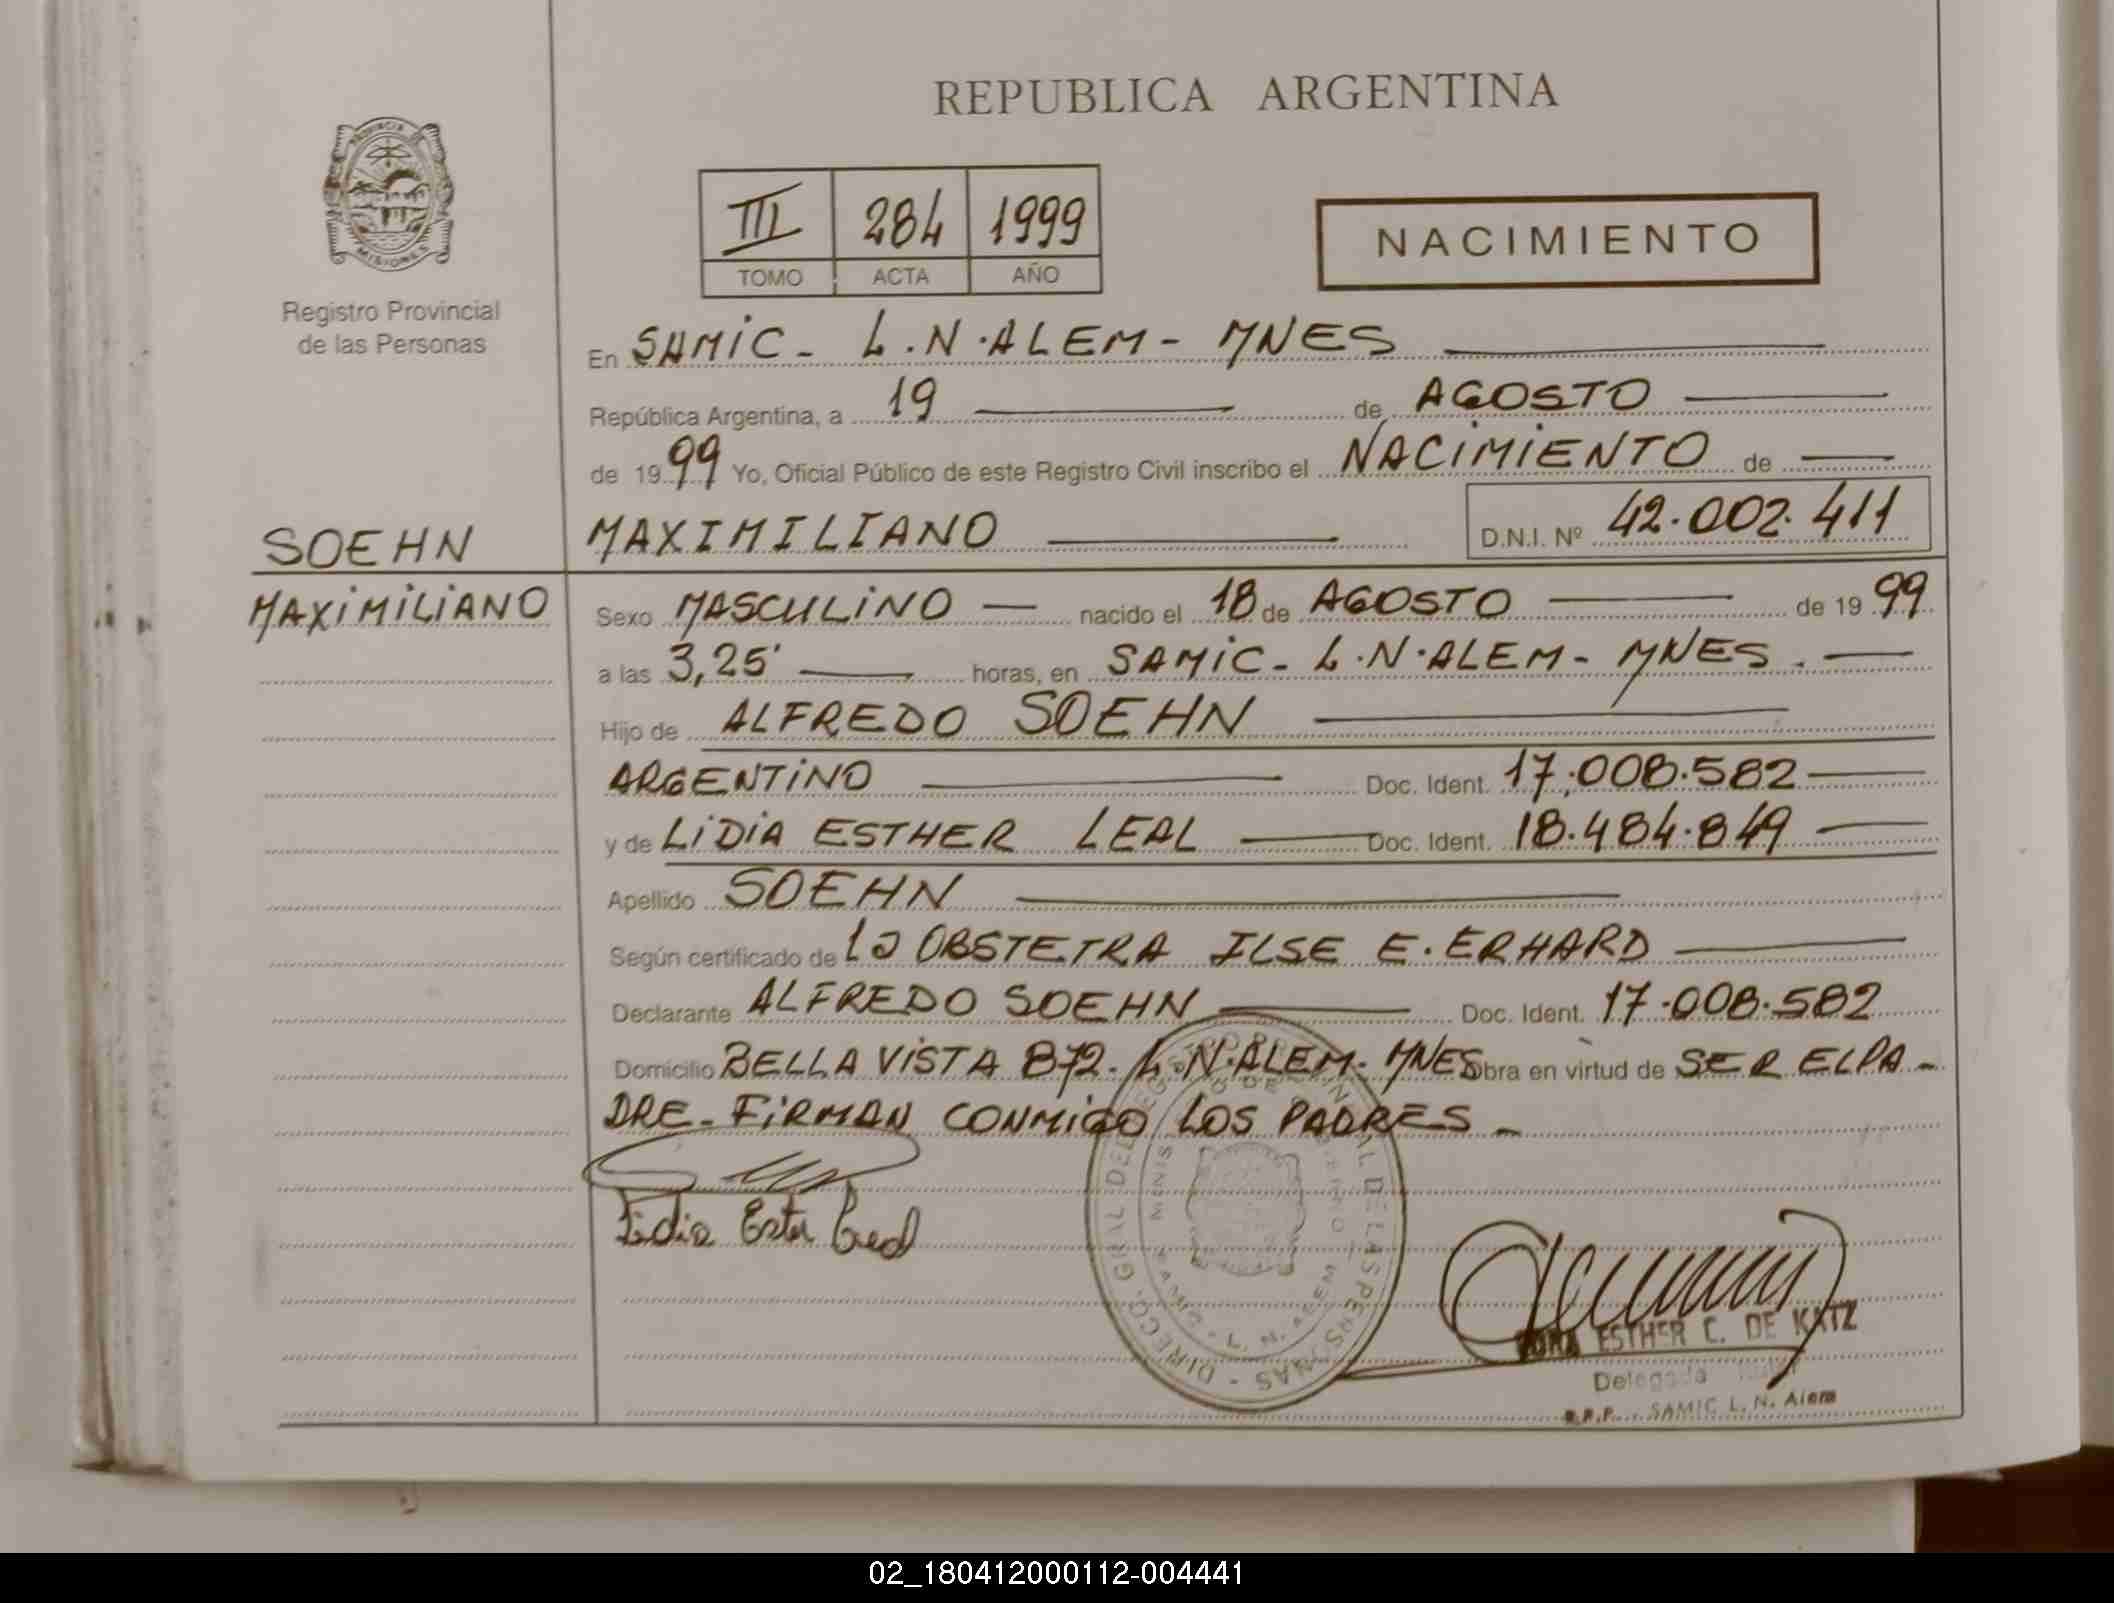 REPUBLICA ARGENTINA
PROVINCIA
MISIONES
Registro Provincial
de las Personas
III 284 1999
TOMO ACTA AÑO
NACIMIENTO
En SAMIC - L.N. ALEM - MNES
República Argentina, a 19 de AGOSTO
de 1999 Yo, Oficial Público de este Registro Civil inscribo el NACIMIENTO de
SOEHN
MAXIMILIANO
MAXIMILIANO D.N.I. Nº 42.002.411
Sexo MASCULINO nacido el 18 de AGOSTO de 1999
a las 3,25' horas, en SAMIC - L.N. ALEM - MNES.
Hijo de ALFREDO SOEHN
ARGENTINO Doc. Ident. 17.008.582
y de LIDIA ESTHER LEAL Doc. Ident. 18.484.849
Apellido SOEHN
Según certificado de la OBSTETRA ILSE E. ERHARD
Declarante ALFREDO SOEHN Doc. Ident. 17.008.582
Domicilio BELLA VISTA 872 - L.N. ALEM - MNES obra en virtud de SER EL PA-
DRE - FIRMAN CONMIGO LOS PADRES -
Lidia Ester Leal
ESTHER C. DE KATZ
Delegada
R.P.P. SAMIC L. N. Alem
02_180412000112-004441